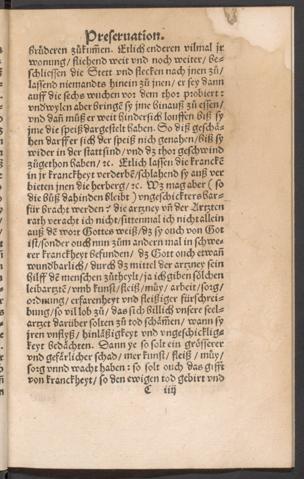 Preservation.
brüderen zůkum̃en. Etlich enderen vilmal jr
wonung / fliehend weit vnd noch weiter / be-
schliessen die Stett vnd flecken nach jnen zů /
lassend niemandts hinein zů jnen / er sey dann
auff die sechs wuchen vor dem thor probiert :
vnd wylen aber bringẽ sy jme hinauß zů essen /
vnd dañ můß er weit hindersich louffen biß sy
jme die speiß dargestelt haben. So diß geschä-
hen darff er sich der speiß nich genahen / biß sy
wider in der statt sind / vnd dz thor geschwind
zůgethon haben / ꝛc. Etlich lassen die krancke
in jr kranckheyt verderbẽ / schlahend sy auß ver
bieten jnen die herberg / ꝛc. Wz mag aber ( so
die bůß dahinden bleibt ) vngeschickters har-
für bracht werden ? die artzney vñ der Artzten
rath veracht ich nicht / sittenmal ich nicht allein
auß dẽ wort Gottes weiß / dz sy ouch von Got
ist / sonder ouch nun zům andern mal in schwe-
rer kranckheyt befunden / dz Gott ouch etwañ
wundbarlich / durch dz mittel der artzney sein
hilff dẽ menschen zůtheylt / ja ich giben sölchen
leibartztẽ / vmb kunst / fleiß / müy / arbeit / sorg /
ordnung / erfarenheyt vnd fleißiger fürschrei-
bung / so vil lob zů / das sich billich vnser seel-
artzet darüber solten zů tod schämen / wann sy
jren vnflyß / hinläßigkeyt vnd vngeschicklig-
keyt bedächten. Dann ye so solt ein grösserer
vnd gefärlicher schad / mer kunst / fleiß / müy /
sorg vnnd wacht haben : so solt ouch das gifft
von kranckheyt / so den ewigen tod gebirt vnd
C iiij